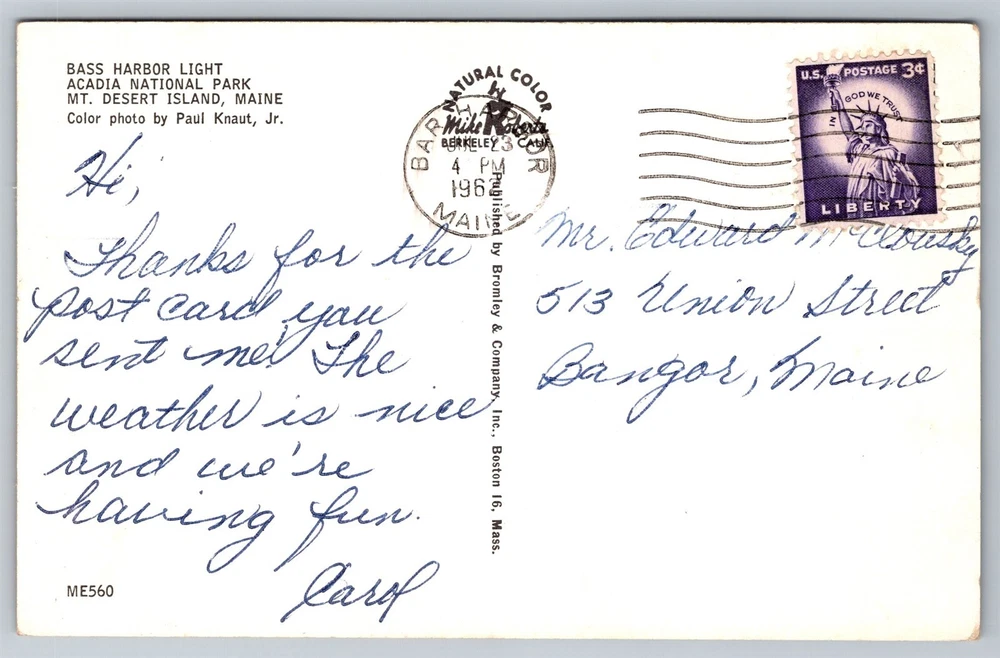 BASS HARBOR LIGHT
ACADIA NATIONAL PARK
MT. DESERT ISLAND, MAINE
Color photo by Paul Knaut, Jr.
Hi,
Thanks for the
post card you
sent me! The
weather is nice
and we're
having fun.
Carol
ME560
NATURAL COLOR
Mike Roberts
BERKELEY CALIF.
BAR HARBOR
23
4 PM
MAINE
Published by Bromley & Company, Inc., Boston 16, Mass.
U.S. POSTAGE 3¢
IN GOD WE TRUST
LIBERTY
Mr. Edward
513 Union Street
Bangor, Maine